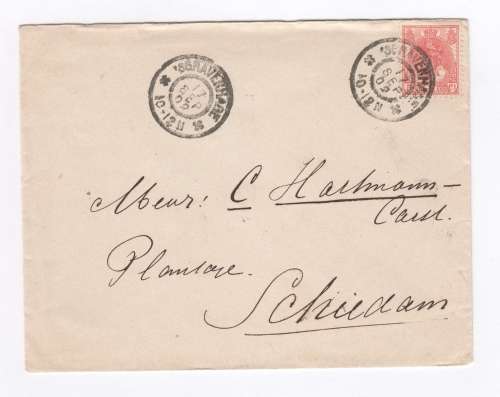 'SGRAVENHAGE
17
SEP
10-12N
'SGRAVENHAGE
17
SEP
02
10-12N
Meur: C Hartmann-
Carst.
Plantage.
Schiedam